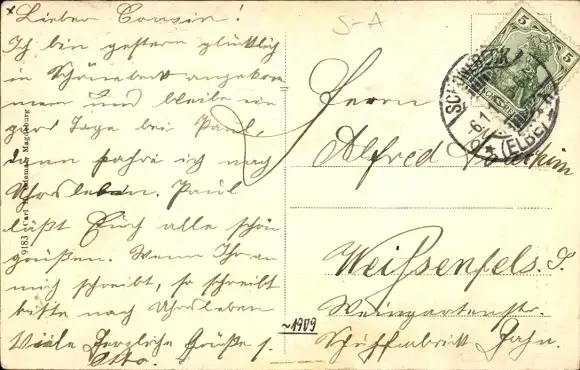 Lieber Cousin!
Ich bin gestern glücklich
in Schönebeck angekom
men und bleibe ein
paar Tage bei Paul,
dann fahre ich nach
Paul
läßt Euch alle schön
grüßen. Wenn Ihr an
mich schreibt, so schreibt
bitte nach
Viele herzliche Grüße
Otto.
9183 Carl Magdeburg
S-A
5
5
(ELBE)
Herrn
Alfred
Weißenfels. S.
Weingartenstr.
~1909